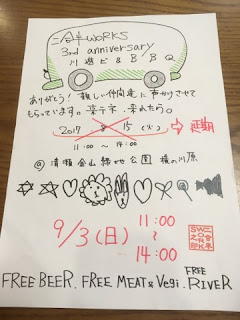 二合半WORKS
3rd anniversary
川遊ビ&BBQ
ありがとう! 親しい仲間達に声かけさせて
もらっています。楽シイ、来れたら。
2017 8 15 (火) ⇒ 延期
11:00 ～ 14:00
@ 清瀬金山緑地公園 横の川原
9/3(日) 11:00
～
14:00
FREE BEER, FREE MEAT & Vegi, FREE RIVER